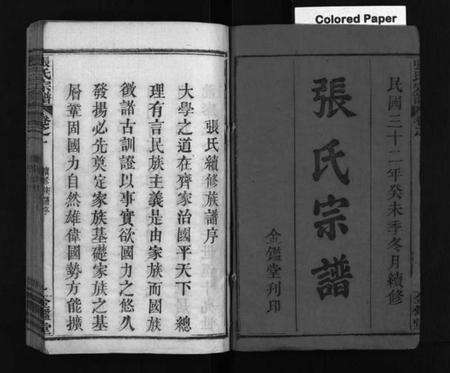 Colored Paper
民國三十二年癸未季冬月續修
張氏宗譜
金鑑堂刊印
張氏續修族譜序
大學之道在齊家治國平天下 總
理有言民族主義是由家族而國族
徵諸古訓證以事實欲國力之悠久
發揚必先奠定家族基礎家族之基
層鞏固國力自然雄偉國勢方能擴
張氏宗譜
卷之一
金鑑堂